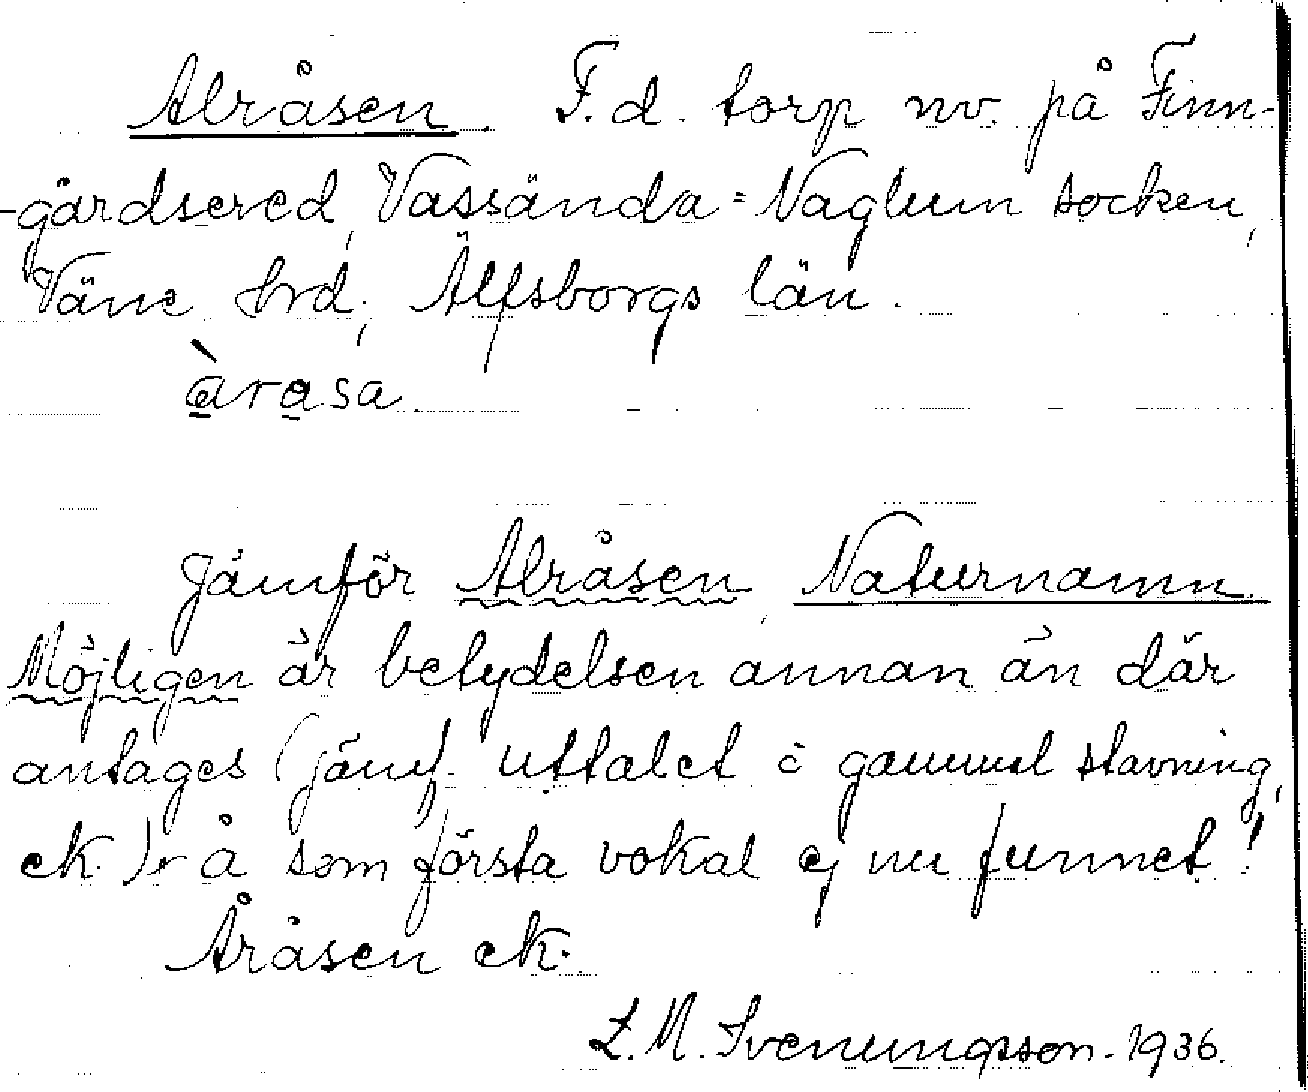 Alråsen F.d. torp nv. på Finn-
-gårdsered, Vassända-Naglum socken,
Väne hrd; Älfsborgs län.
àrasa
Jämför Alråsen, Naturnamn.
Möjligen är betydelsen annan än där
antages (jämf. uttalet o gammal stavning,
ek.) å som första vokal ej nu funnet!
Åråsen ek.
L.M. Svenungsson. 1936.